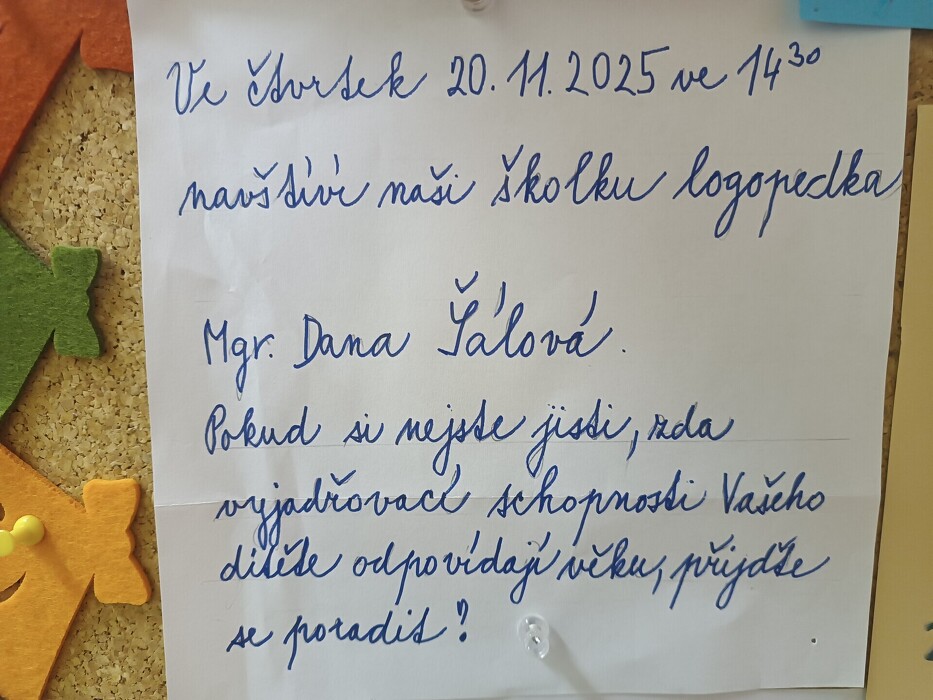 Ve čtvrtek 20.11.2025 ve 14³⁰
navštíví naši školku logopedka
Mgr. Dana Šálová.
Pokud si nejste jisti, zda
vyjadřovací schopnosti Vašeho
dítěte odpovídají věku, přijďte
se poradit?